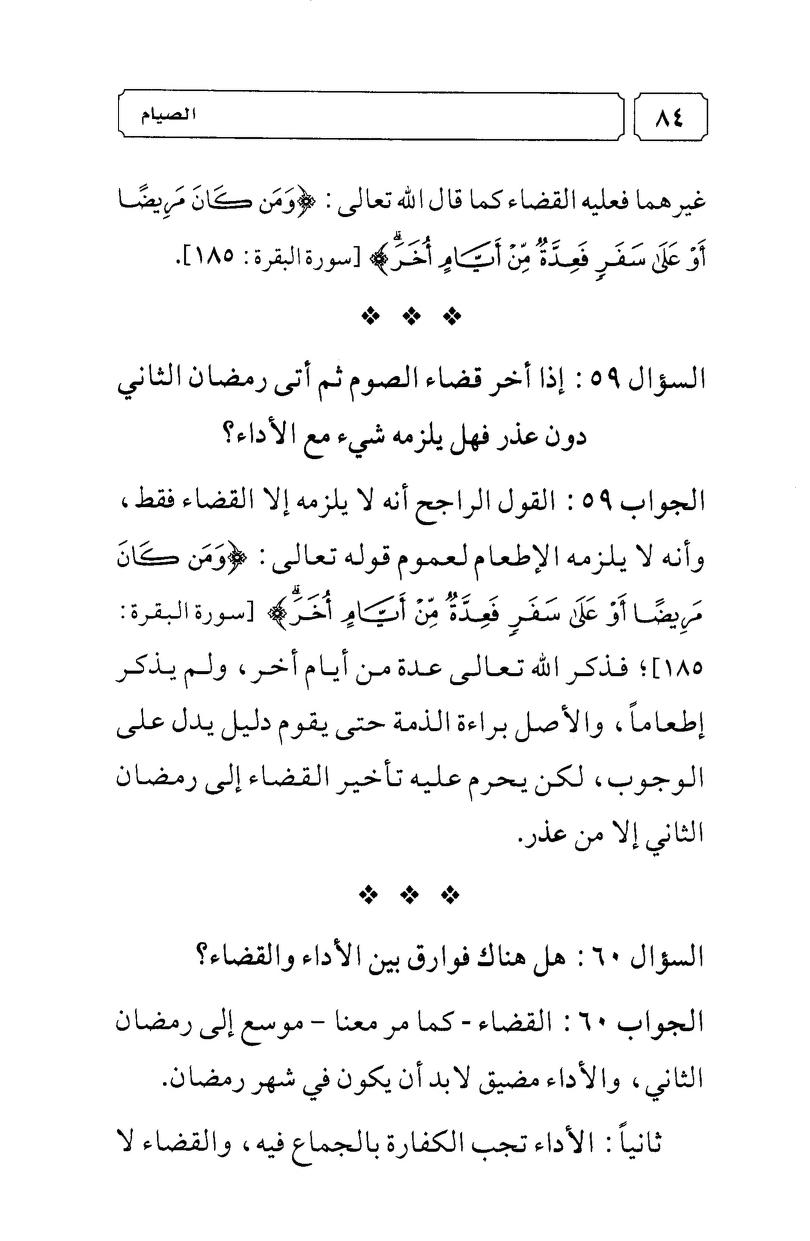 ٨٤
الصيام
غيرهما فعليه القضاء كما قال الله تعالى: ﴿وَمَن كَانَ مَرِيضًا
أَوْ عَلَىٰ سَفَرٍ فَعِدَّةٌ مِّنْ أَيَّامٍ أُخَرَ ۗ﴾ [سورة البقرة: ١٨٥].
السؤال ٥٩: إذا أخر قضاء الصوم ثم أتى رمضان الثاني
دون عذر فهل يلزمه شيء مع الأداء؟
الجواب ٥٩: القول الراجح أنه لا يلزمه إلا القضاء فقط،
وأنه لا يلزمه الإطعام لعموم قوله تعالى: ﴿وَمَن كَانَ
مَرِيضًا أَوْ عَلَىٰ سَفَرٍ فَعِدَّةٌ مِّنْ أَيَّامٍ أُخَرَ ۗ﴾ [سورة البقرة:
١٨٥]؛ فذكر الله تعالى عدة من أيام أخر، ولم يذكر
إطعاماً، والأصل براءة الذمة حتى يقوم دليل يدل على
الوجوب، لكن يحرم عليه تأخير القضاء إلى رمضان
الثاني إلا من عذر.
السؤال ٦٠: هل هناك فوارق بين الأداء والقضاء؟
الجواب ٦٠: القضاء - كما مر معنا - موسع إلى رمضان
الثاني، والأداء مضيق لابد أن يكون في شهر رمضان.
ثانياً: الأداء تجب الكفارة بالجماع فيه، والقضاء لا